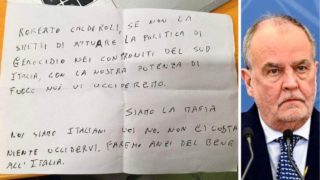 ROBERTO CALDEROLI, SE NON LA
SMETTI DI ATTUARE LA POLITICA DI
GENOCIDIO NEI CONFRONTI DEL SUD
ITALIA, CON LA NOSTRA POTENZA DI
FUOCO NOI VI UCCIDEREMO.
SIAMO LA MAFIA
NOI SIAMO ITALIANI VOI NO. NON CI COSTA
NIENTE UCCIDERVI. FAREMO ANZI DEL BENE
ALL'ITALIA.